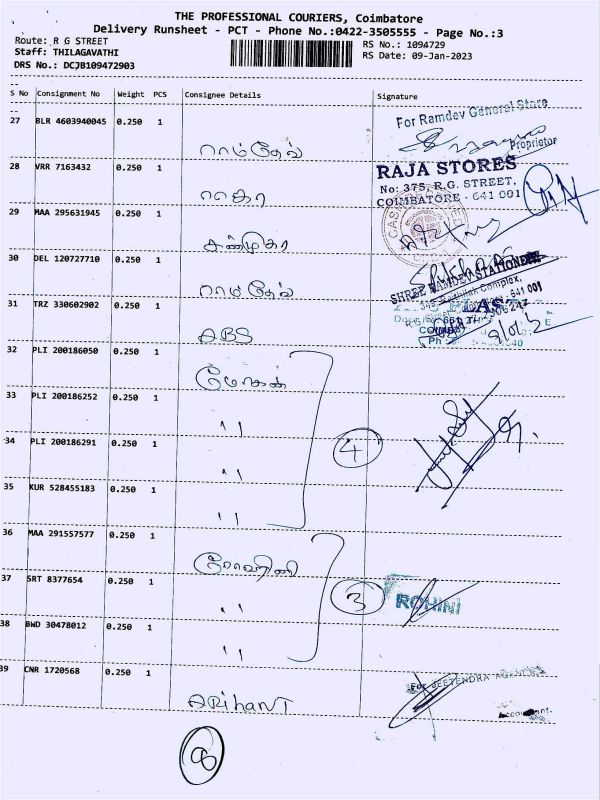 THE PROFESSIONAL COURIERS, Coimbatore
Delivery Runsheet - PCT - Phone No.:0422-3505555 - Page No.:3
Route: R G STREET
RS No.: 1094729
Staff: THILAGAVATHI
RS Date: 09-Jan-2023
DRS No.: DCJB109472903
S No Consignment No Weight PCS Consignee Details Signature
27 BLR 4603940045 0.250 1
For Ramdev General Store
ராம்தேவ்
Proprietor
28 VRR 7163432 0.250 1
RAJA STORES
No: 375, R.G. STREET,
COIMBATORE - 641 001
29 MAA 295631945 0.250 1
30 DEL 120727710 0.250 1
ராம்தேவ்
SHREE RAMDEV STATIONERY
31 TRZ 330602902 0.250 1
ABS
32 PLI 200186050 0.250 1
33 PLI 200186252 0.250 1
"
34 PLI 200186291 0.250 1
4
"
35 KUR 528455183 0.250 1
"
36 MAA 291557577 0.250 1
ரோஹிணி
37 SRT 8377654 0.250 1
3
ROHINI
"
38 BWD 30478012 0.250 1
"
39 CNR 1720568 0.250 1
For JEETENDRA AGENCIES
ARihanT
Accountant
8